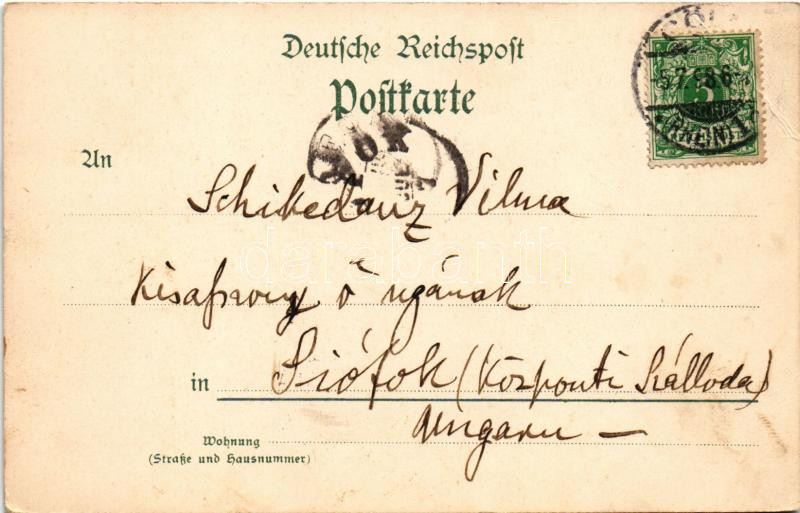 Deutsche Reichspost
Postkarte
An
Schikedanz Vilma
Kisasszony ő nagának
in Siófok (Központi Szálloda)
Ungarn —
Wohnung
(Straße und Hausnummer)
5
darabanth